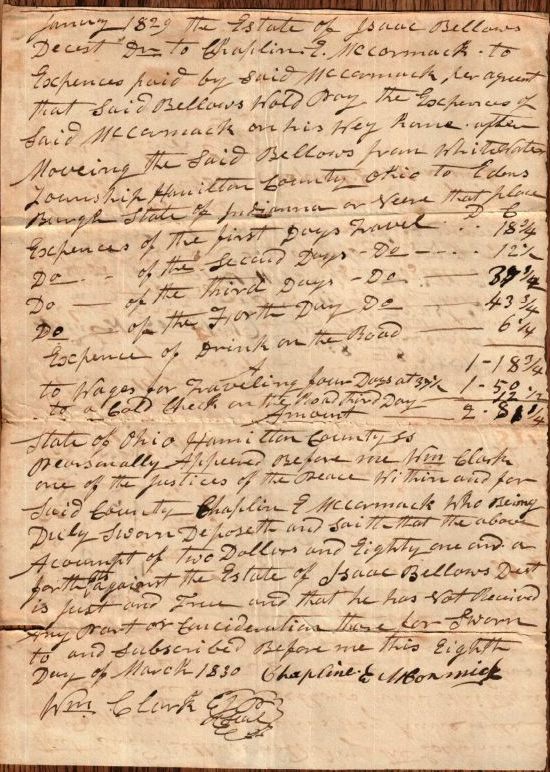 January 1829 the Estate of Isaac Bellows
Decest Dr to Chaplin E. McCormack to
Expences paid by Said McCormack per agreent
that Said Bellows Wold Pay the Expences of
Said McCormack on his Wey home after
Moveing the Said Bellows from Whitewater
Township Hamilton County Ohio to Edens
Burgh State of Indianna or Neere that place
D C
Expences of the first Days Travel 18 3/4
Do of the Second Days Do 12 1/2
Do of the third Days Do 37 1/4
Do of the forth Day Do 43 3/4
Expence of Drink on the Road 6 1/4
1-18 3/4
to Wages for Traveling four Days at 37 1/2 1-50
to a Cold Check on the Road third Day 12 1/2
Amount 2-81 1/4
State of Ohio Hamilton County Ss
Pearsonally Appeered Before me Wm Clark
one of the Justices of the Peace Within and for
Said County Chaplin E McCormack Who Being
Duly Sworn Deposeth and saith that the above
Acoumpt of two Dollars and Eighty one and a
forth against the Estate of Isaac Bellows Dest
is Just and True and that he has Not Received
Any Part or Concideration thare for Sworn
to and Subscribed Before me this Eighth
Day of March 1830 Chapline E McCormick
Wm Clark
Seal